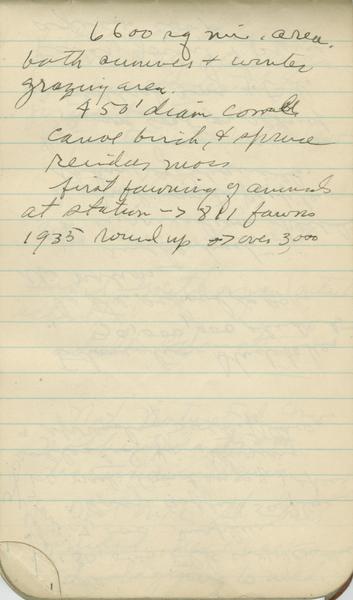 6600 sq mi. area.
both summer + winter
grazing area.
4 50' diam corrals
canoe birch, & spruce
reindeer moss
first fawning of animals
at station -> 811 fawns
1935 round up -> over 3,000